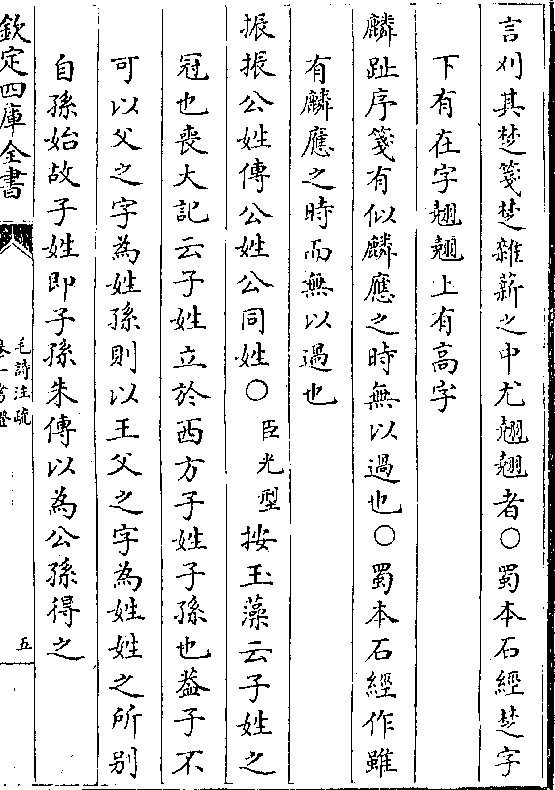 言刈其楚箋楚雜薪之中尤翹翹者○蜀本石經楚字
下有在字翹翹上有高字
麟趾序箋有似麟應之時無以過也○蜀本石經作雖
有麟應之時而無以過也
振振公姓傳公姓公同姓○臣光型按玉藻云子姓之
冠也喪大記云子姓立於西方子姓子孫也葢子不
可以父之字為姓孫則以王父之字為姓姓之所别
自孫始故子姓即子孫朱傳以為公孫得之
欽定四庫全書
毛詩注疏
卷一考證
五